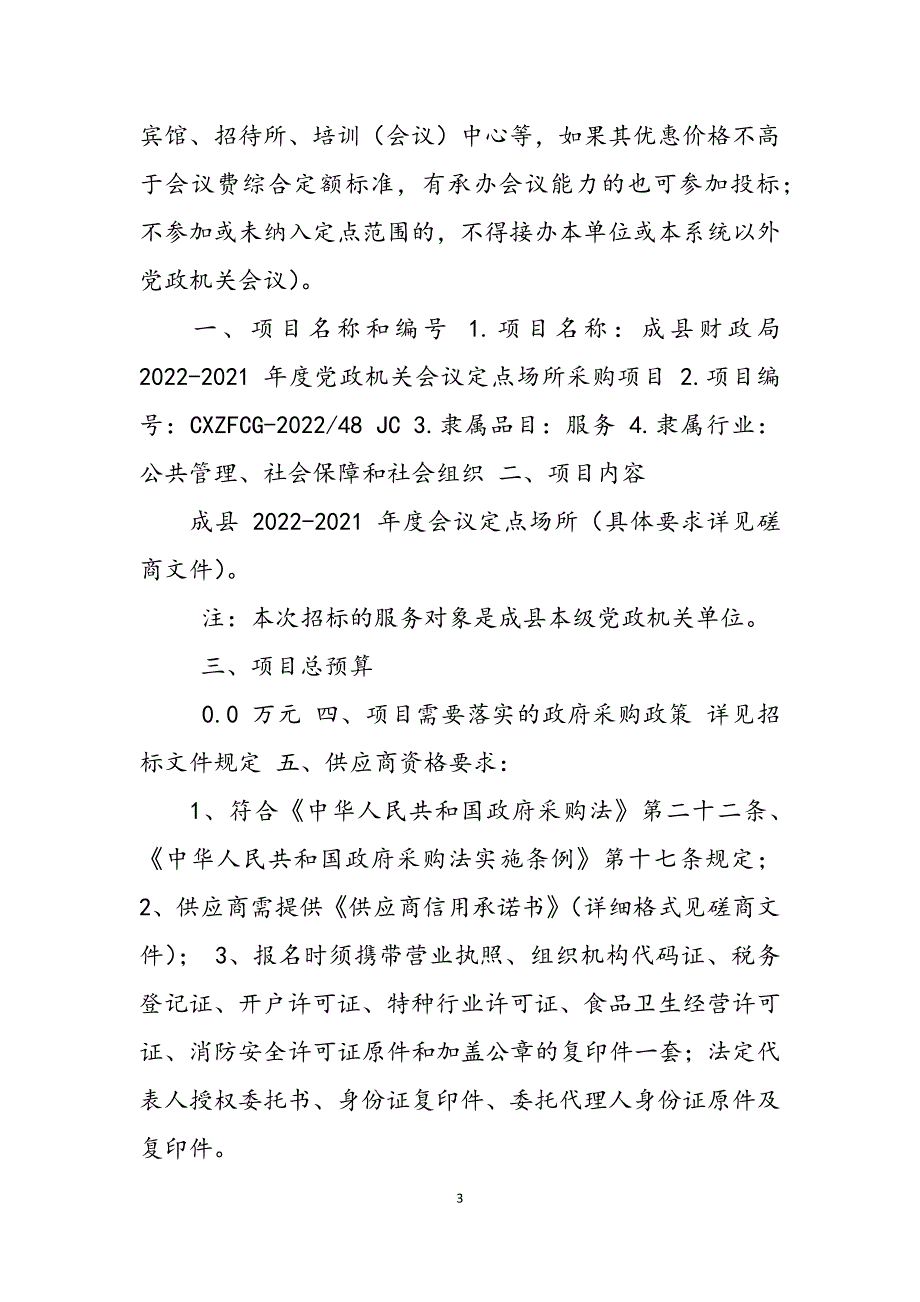 宾馆、招待所、培训（会议）中心等，如果其优惠价格不高
于会议费综合定额标准，有承办会议能力的也可参加投标；
不参加或未纳入定点范围的，不得接办本单位或本系统以外
党政机关会议）。
一、项目名称和编号 1.项目名称：成县财政局
2022-2021 年度党政机关会议定点场所采购项目 2.项目编
号：CXZFCG-2022/48 JC 3.隶属品目：服务 4.隶属行业：
公共管理、社会保障和社会组织 二、项目内容
成县 2022-2021 年度会议定点场所（具体要求详见磋
商文件）。
注：本次招标的服务对象是成县本级党政机关单位。
三、项目总预算
0.0 万元 四、项目需要落实的政府采购政策 详见招
标文件规定 五、供应商资格要求：
1、符合《中华人民共和国政府采购法》第二十二条、
《中华人民共和国政府采购法实施条例》第十七条规定；
2、供应商需提供《供应商信用承诺书》（详细格式见磋商文
件）； 3、报名时须携带营业执照、组织机构代码证、税务
登记证、开户许可证、特种行业许可证、食品卫生经营许可
证、消防安全许可证原件和加盖公章的复印件一套；法定代
表人授权委托书、身份证复印件、委托代理人身份证原件及
复印件。
3